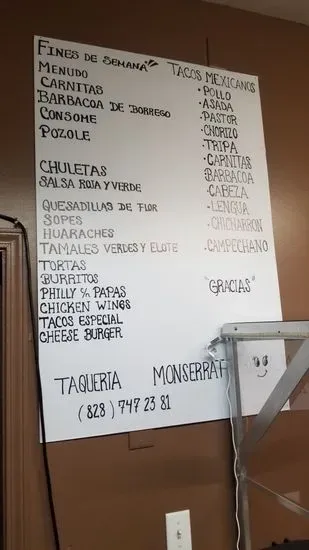 FINES DE SEMANA
MENUDO
CARNITAS
BARBACOA DE BORREGO
CONSOME
POZOLE
CHULETAS
SALSA ROJA Y VERDE
QUESADILLAS DE FLOR
SOPES
HUARACHES
TAMALES VERDES Y ELOTE
TORTAS
BURRITOS
PHILLY C/n PAPAS
CHICKEN WINGS
TACOS ESPECIAL
CHEESE BURGER
TACOS MEXICANOS
• POLLO
• ASADA
• PASTOR
• CHORIZO
• TRIPA
• CARNITAS
BARBACOA
• CABEZA
- LENGUA
• CHICHARRON
• CAMPECHANO
"GRACIAS"
TAQUERIA MONSERRAT
(828) 747 23 81